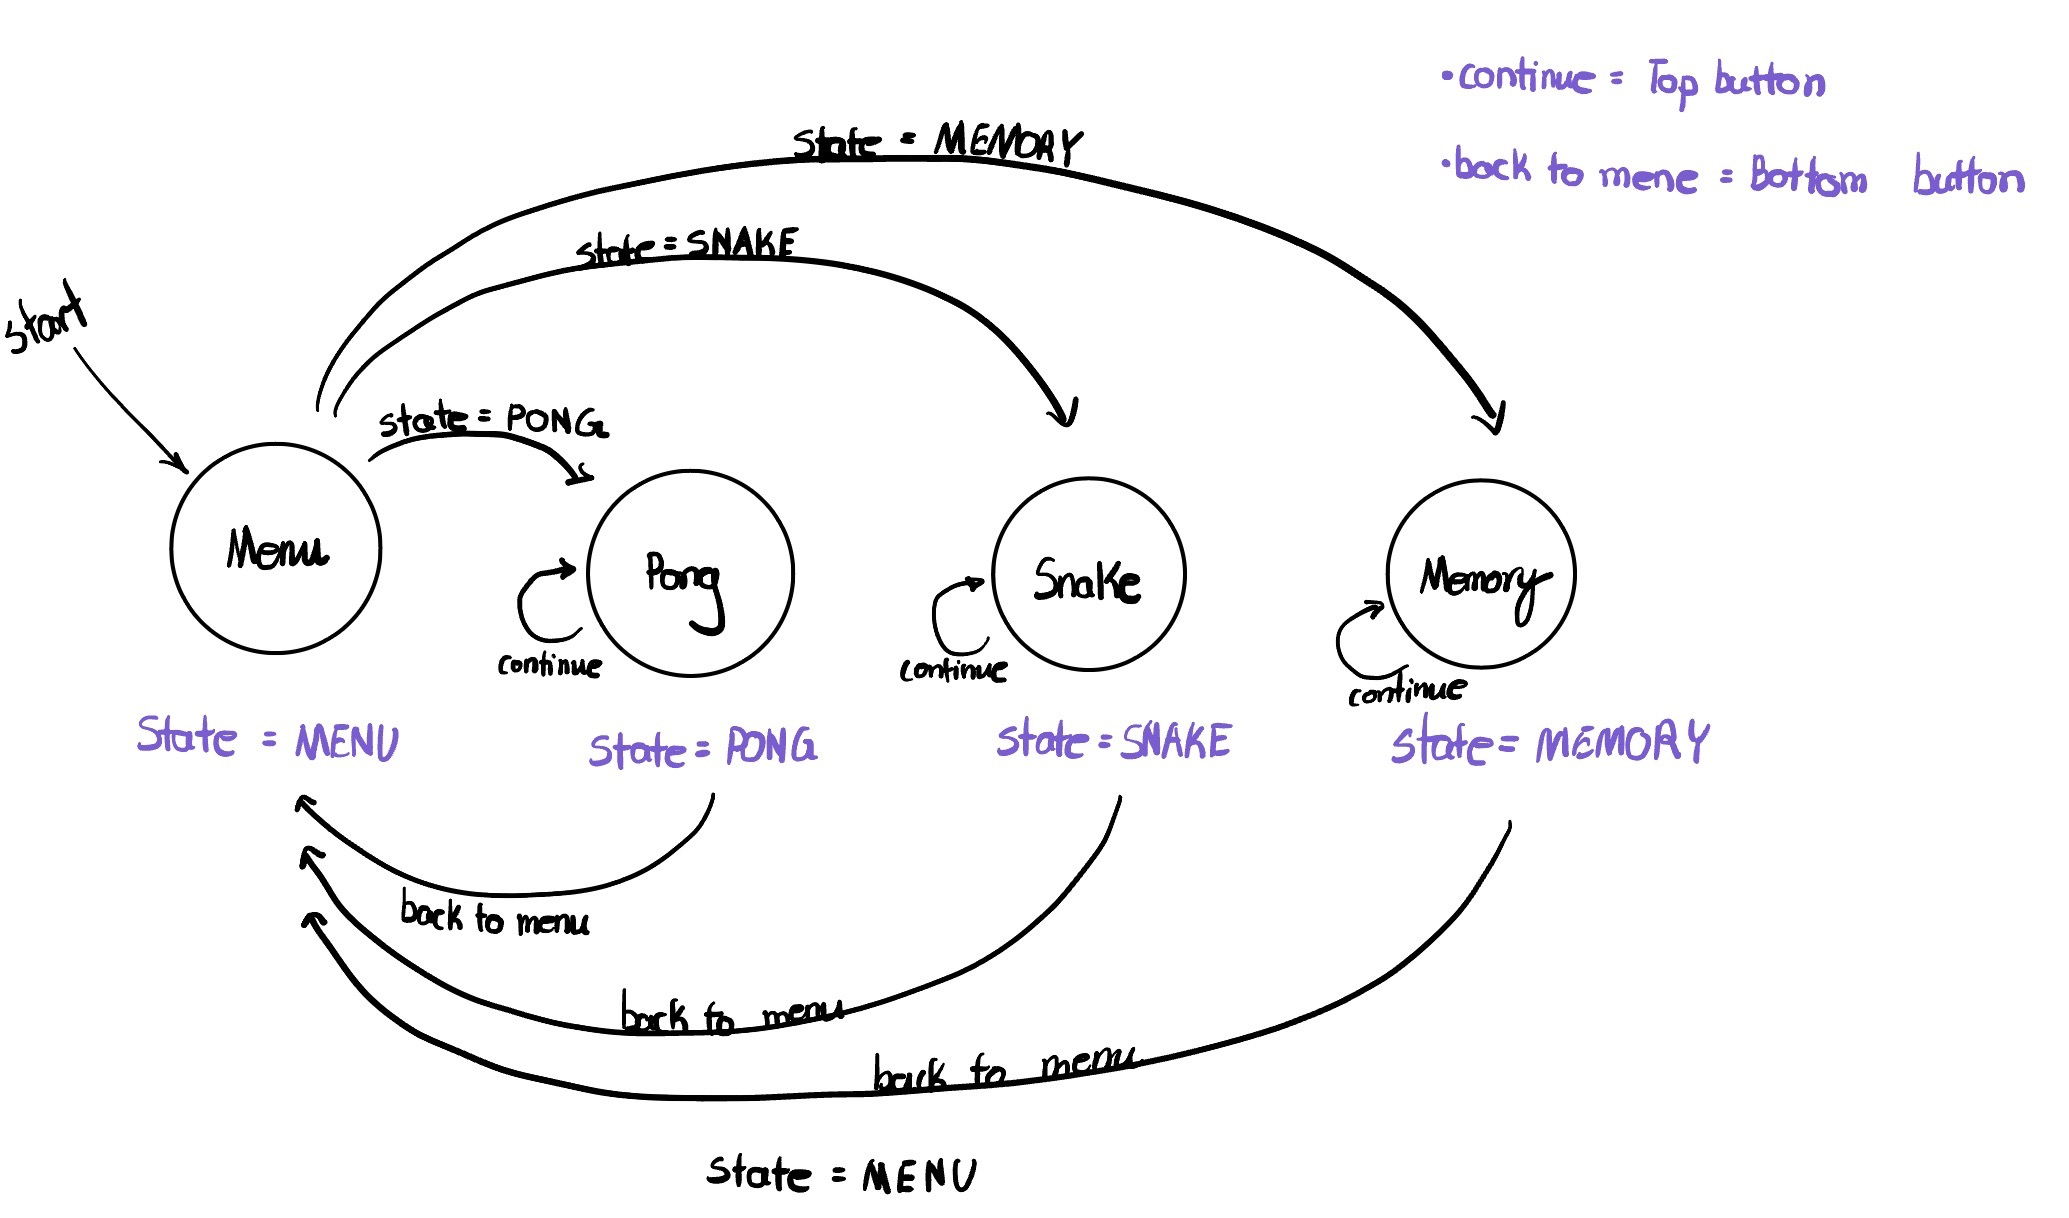 •continue = Top button
•back to mene = Bottom button
state = MEMORY
state = SNAKE
start
state = PONG
Menu
Pong
Snake
Memory
continue
continue
continue
State = MENU
state = PONG
state = SNAKE
state = MEMORY
back to menu
back to menu
back to menu
state = MENU